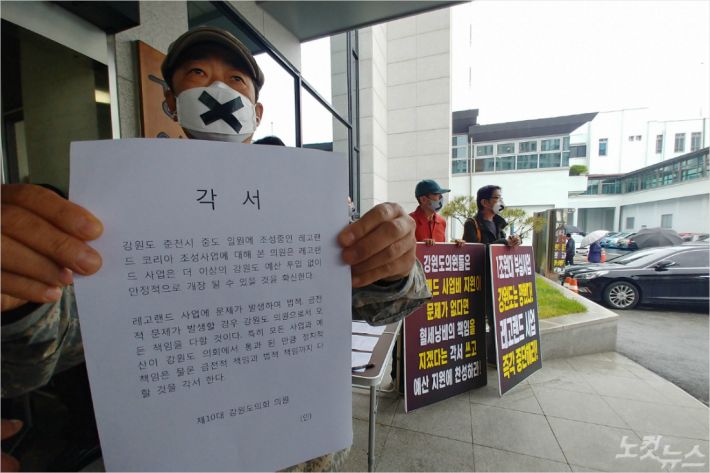 각 서
강원도 춘천시 중도 일원에 조성중인 레고랜
드 코리아 조성사업에 대해 본 의원은 레고랜
드 사업은 더 이상의 강원도 예산 투입 없이
안정적으로 개장 될 수 있을 것을 확신한다.
레고랜드 사업에 문제가 발생하며 법적, 금전
적 문제가 발생할 경우 강원도 의원으로서 모
든 책임을 다할 것이다. 특히 모든 사업과 예
산이 강원도 의회에서 통과 된 만큼 정치적
책임은 물론 금전적 책임과 법적 책임까지 다
할 것을 각서 한다.
제10대 강원도의회 의원
(인)
강원도의원들은
랜드 사업비 지원이
문제가 없다면
혈세낭비의 책임을
지겠다는 각서 쓰고
예산 지원에 찬성하라!
1조원대 부실사업
강원도는
레고랜드 사업
즉각 중단하라!
노컷뉴스